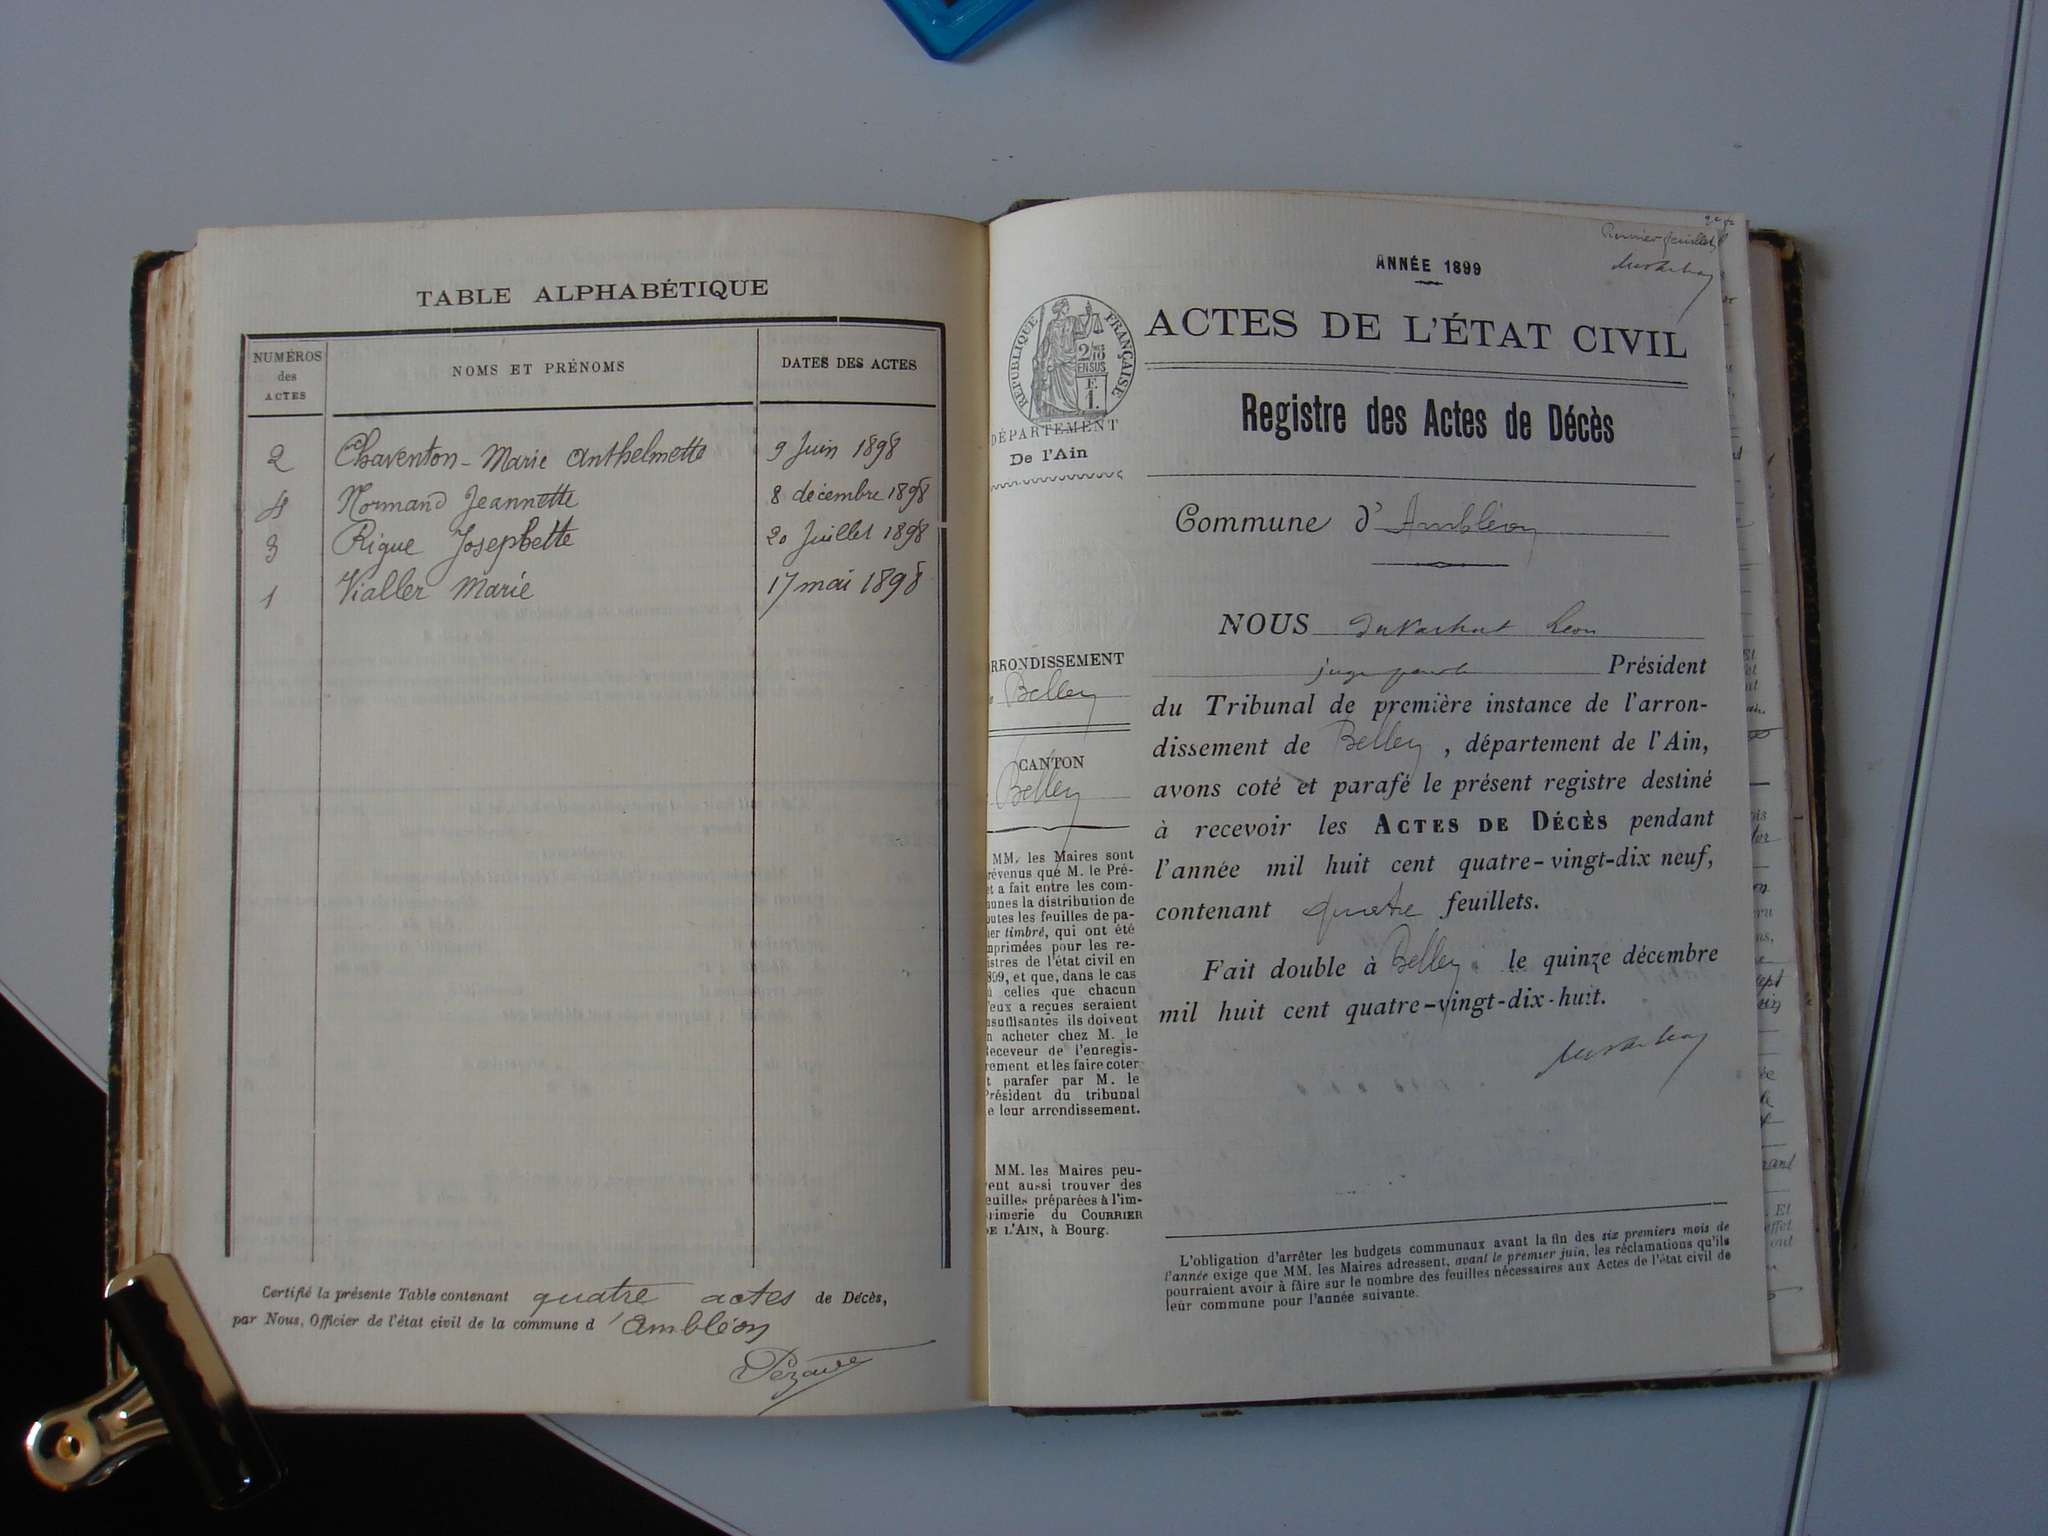 TABLE ALPHABÉTIQUE
NUMÉROS des ACTES
NOMS ET PRÉNOMS
DATES DES ACTES
2 Chaventon - Marie Anthelmette 9 Juin 1898
4 Normand Jeannette 8 décembre 1898
3 Rigue Josephette 20 Juillet 1898
1 Vialler Marie 17 mai 1898
Certifié la présente Table contenant quatre actes de Décès,
par Nous, Officier de l'état civil de la commune d'Ambléon
Premier feuillet
ANNÉE 1899
ACTES DE L'ÉTAT CIVIL
RÉPUBLIQUE FRANÇAISE
2/10
EN SUS
F
1.
Registre des Actes de Décès
DÉPARTEMENT
De l'Ain
Commune d'Ambléon
RRONDISSEMENT
Belley
CANTON
Belley
MM. les Maires sont
révenus que M. le Pré-
et a fait entre les com-
munes la distribution de
outes les feuilles de pa-
ier timbré, qui ont été
mprimées pour les re-
istres de l'état civil en
899, et que, dans le cas
ù celles que chacun
'eux a reçues seraient
nsuffisantes ils doivent
n acheter chez M. le
Receveur de l'enregis-
rement et les faire coter
t parafer par M. le
Président du tribunal
e leur arrondissement.
MM. les Maires peu-
vent aussi trouver des
feuilles préparées à l'im-
primerie du COURRIER
DE L'AIN, à Bourg.
NOUS Léon
juge Président
du Tribunal de première instance de l'arron-
dissement de Belley, département de l'Ain,
avons coté et parafé le présent registre destiné
à recevoir les ACTES DE DÉCÈS pendant
l'année mil huit cent quatre-vingt-dix neuf,
contenant quatre feuillets.
Fait double à Belley, le quinze décembre
mil huit cent quatre-vingt-dix-huit.
L'obligation d'arrêter les budgets communaux avant la fin des six premiers mois de
l'année exige que MM. les Maires adressent, avant le premier juin, les réclamations qu'ils
pourraient avoir à faire sur le nombre des feuilles nécessaires aux Actes de l'état civil de
leur commune pour l'année suivante.